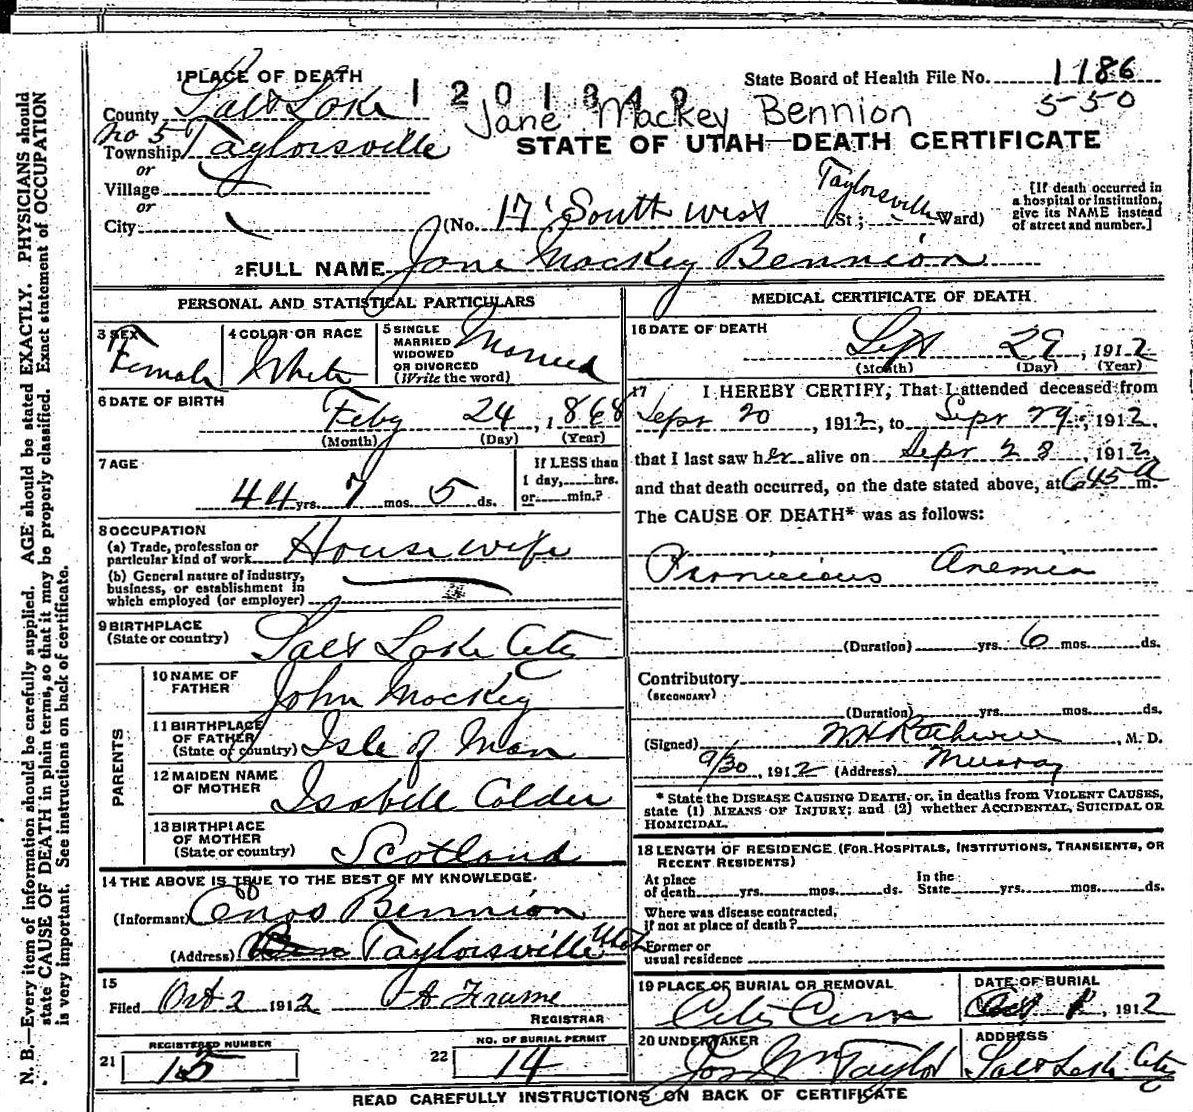 N. B.—Every item of information should be carefully supplied. AGE should be stated EXACTLY. PHYSICIANS should
state CAUSE OF DEATH in plain terms, so that it may be properly classified. Exact statement of OCCUPATION
is very important. See instructions on back of certificate.
1 PLACE OF DEATH
State Board of Health File No. 1186
550
County Salt Lake
1201340
Jane Mackey Bennion
no 5
Township Taylorsville
STATE OF UTAH—DEATH CERTIFICATE
or
Village
or
City
(No. 17 South West Taylorsville (St; Ward)
[If death occurred in
a hospital or institution,
give its NAME instead
of street and number.]
2 FULL NAME Jane Mackey Bennion
PERSONAL AND STATISTICAL PARTICULARS
3 SEX Female
4 COLOR OR RACE White
5 SINGLE
MARRIED
WIDOWED
OR DIVORCED
(Write the word) Married
6 DATE OF BIRTH
Feby 24, 1868
(Month) (Day) (Year)
7 AGE
44 yrs. 7 mos. 5 ds.
If LESS than
1 day, hrs.
or min.?
8 OCCUPATION
(a) Trade, profession or
particular kind of work House wife
(b) General nature of industry,
business, or establishment in
which employed (or employer)
9 BIRTHPLACE
(State or country) Salt Lake City
PARENTS
10 NAME OF
FATHER John Mackey
11 BIRTHPLACE
OF FATHER
(State or country) Isle of Man
12 MAIDEN NAME
OF MOTHER Isabell Calder
13 BIRTHPLACE
OF MOTHER
(State or country) Scotland
14 THE ABOVE IS TRUE TO THE BEST OF MY KNOWLEDGE.
(Informant) Enos Bennion
(Address) Taylorsville Utah
15
Filed Oct 2 1912
REGISTRAR
21 REGISTERED NUMBER
15
22 NO. OF BURIAL PERMIT
14
MEDICAL CERTIFICATE OF DEATH
16 DATE OF DEATH
Sept 29, 1912
(Month) (Day) (Year)
17 I HEREBY CERTIFY, That I attended deceased from
Sept 20, 1912, to Sept 29, 1912,
that I last saw her alive on Sept 28, 1912,
and that death occurred, on the date stated above, at 645 A m.
The CAUSE OF DEATH* was as follows:
Pernicious Anemia
(Duration) yrs. 6 mos. ds.
Contributory
(SECONDARY)
(Duration) yrs. mos. ds.
(Signed) , M. D.
9/30, 1912 (Address) Murray
* State the DISEASE CAUSING DEATH, or, in deaths from VIOLENT CAUSES,
state (1) MEANS OF INJURY; and (2) whether ACCIDENTAL, SUICIDAL OR
HOMICIDAL.
18 LENGTH OF RESIDENCE (FOR HOSPITALS, INSTITUTIONS, TRANSIENTS, OR
RECENT RESIDENTS)
At place
of death yrs. mos. ds.
In the
State yrs. mos. ds.
Where was disease contracted,
if not at place of death?
Former or
usual residence
19 PLACE OF BURIAL OR REMOVAL
City Cem
DATE OF BURIAL
Oct 1, 1912
20 UNDERTAKER
Jos Wm Taylor
ADDRESS
Salt Lake City
READ CAREFULLY INSTRUCTIONS ON BACK OF CERTIFICATE